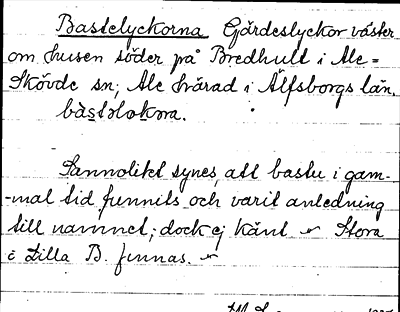 Bastelyckorna Gärdeslyckor väster
om husen söder på Bredhult i Ale=
Skövde sn, Ale härad i Älfsborgs län.
bàstəlokɷra.
Sannolikt synes, att bastu i gam-
-mal tid funnits och varit anledning
till namnet; dock ej känt. Stora
& Lilla B. finnas.